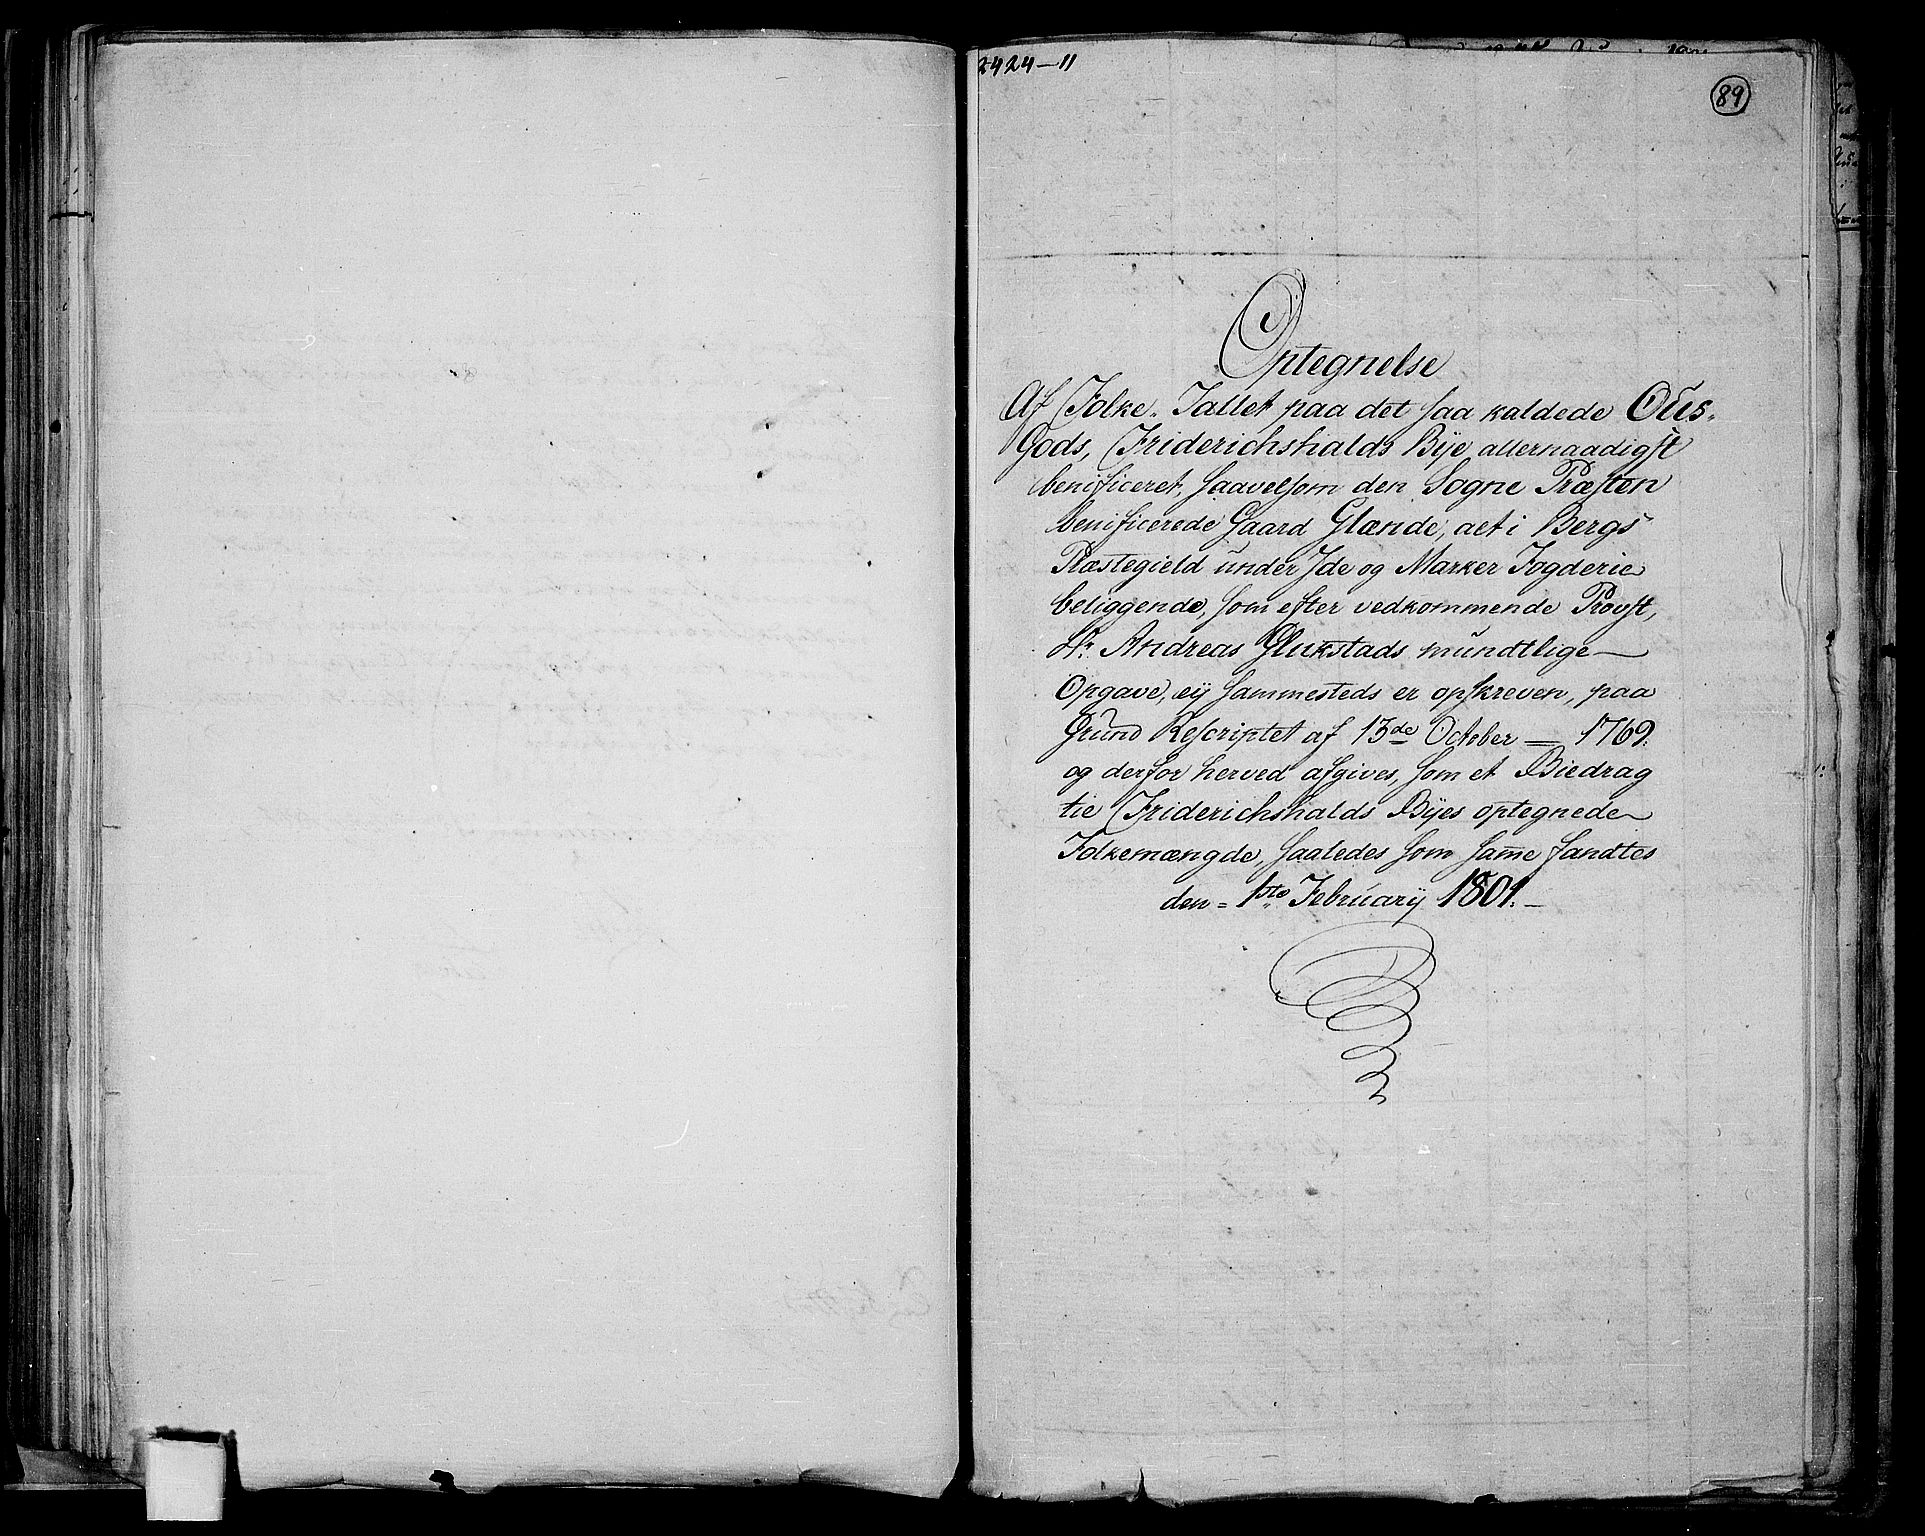 2424-11
89
Optegnelse
Af Folke-Tallet paa det saa kaldede Ous-
Gods, Friderichshalds Bÿe allernaadigst
benificeret, saavelsom den Sogne Præsten
benificerede Gaard Glænde, alt i Bergs
Præstegield under Ide og Marker Fogderie
beliggende, som efter vedkommende Provst,
Hr. Andreas Glukstads mundtlige
Opgave, eÿ sammesteds er opskreven, paa
Grund Rescriptet af 13de October 1769.
og derfor herved afgives, som et Biedrag
til Friderichshalds Bÿes optegnede
Folkemængde, saaledes som same fandtes
den 1ste Februarÿ 1801.